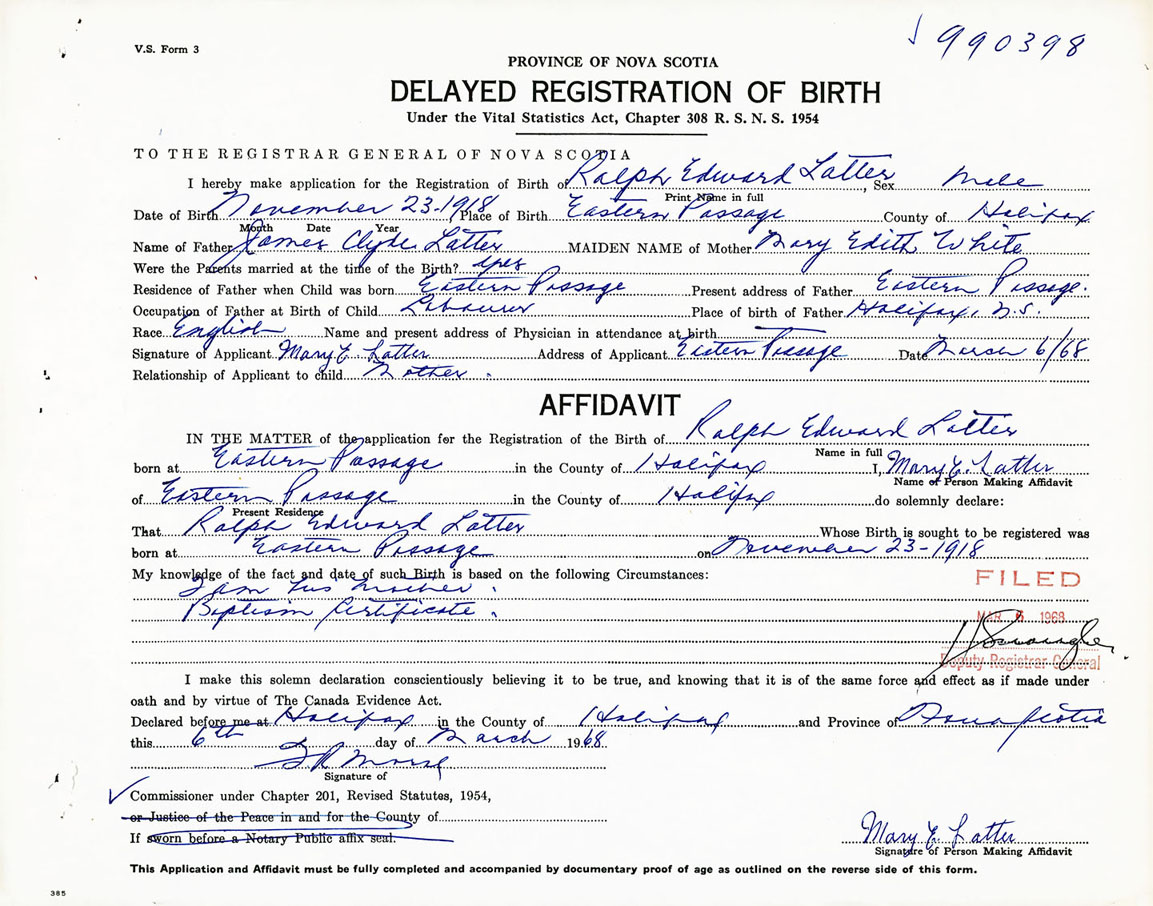 V.S. Form 3
990398
PROVINCE OF NOVA SCOTIA
DELAYED REGISTRATION OF BIRTH
Under the Vital Statistics Act, Chapter 308 R. S. N. S. 1954
TO THE REGISTRAR GENERAL OF NOVA SCOTIA
I hereby make application for the Registration of Birth of Ralph Edward Latter, Sex Male
Print Name in full
Date of Birth November 23-1918, Place of Birth Eastern Passage County of Halifax
Month Date Year
Name of Father James Clyde Latter MAIDEN NAME of Mother Mary Edith White
Were the Parents married at the time of the Birth? yes
Residence of Father when Child was born Eastern Passage Present address of Father Eastern Passage.
Occupation of Father at Birth of Child Labourer Place of birth of Father Halifax, N.S.
Race English Name and present address of Physician in attendance at birth
Signature of Applicant Mary E. Latter Address of Applicant Eastern Passage Date March 6/68
Relationship of Applicant to child Mother.
AFFIDAVIT
IN THE MATTER of the application for the Registration of the Birth of Ralph Edward Latter
Name in full
born at Eastern Passage in the County of Halifax I, Mary E. Latter
Name of Person Making Affidavit
of Eastern Passage in the County of Halifax do solemnly declare:
Present Residence
That Ralph Edward Latter Whose Birth is sought to be registered was
born at Eastern Passage on November 23-1918
My knowledge of the fact and date of such Birth is based on the following Circumstances:
I am his mother.
FILED
Baptism Certificate.
MAR 6 1968
Deputy Registrar General
I make this solemn declaration conscientiously believing it to be true, and knowing that it is of the same force and effect as if made under
oath and by virtue of The Canada Evidence Act.
Declared before me at Halifax in the County of Halifax and Province of Nova Scotia
this 6th day of March 1968
Signature of
Commissioner under Chapter 201, Revised Statutes, 1954,
or Justice of the Peace in and for the County of
If sworn before a Notary Public affix seal.
Mary E. Latter
Signature of Person Making Affidavit
This Application and Affidavit must be fully completed and accompanied by documentary proof of age as outlined on the reverse side of this form.
385